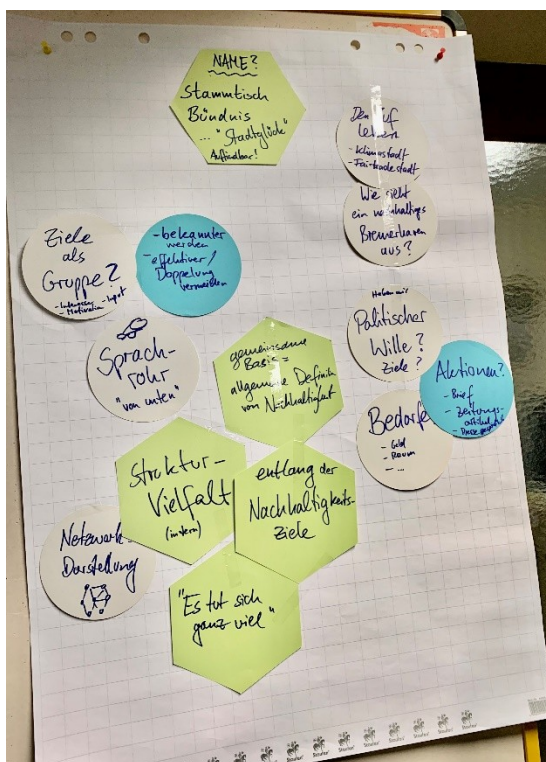 NAME?
Stammtisch
Bündnis
... "Stadtglück"
Auffindbar!
Den Ruf
leben
- Klimastadt
- Fairtradestadt
Wie sieht
ein nachhaltiges
Bremerhaven
aus?
Ziele
als
Gruppe?
- Interessen
- Motivation - Input
- bekannter
werden
- effektiver /
Doppelung
vermeiden
Sprach-
rohr
"von unten"
gemeinsame
Basis =
allgemeine Definition
von Nachhaltigkeit
Haben wir
Politischer
Wille?
Ziele?
Aktionen?
- Brief
- Zeitungs-
artikel
Bedarfe
- Geld
- Raum
- ...
Struktur-
Vielfalt
(intern)
entlang der
Nachhaltigkeits-
ziele
Netzwerk-
Darstellung
"Es tut sich
ganz viel"